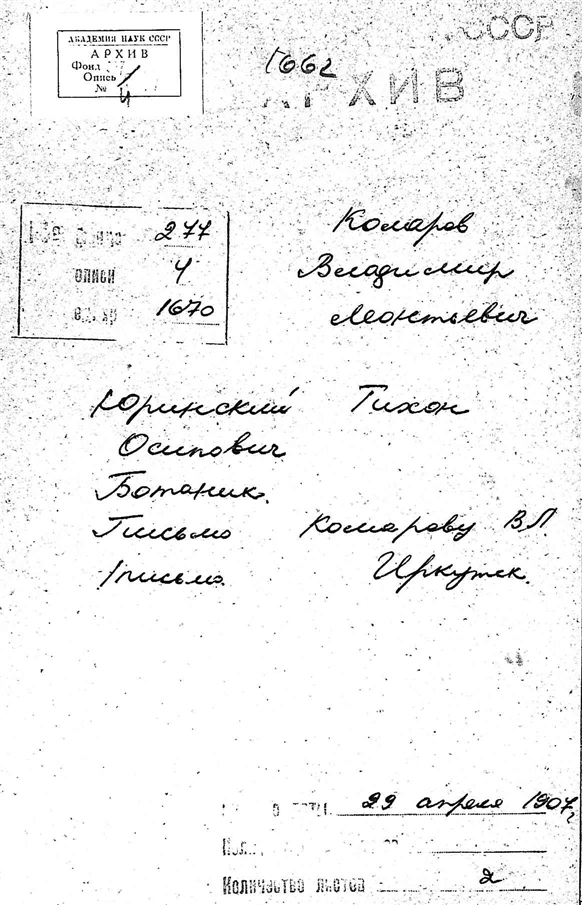 АКАДЕМИЯ НАУК СССР
АРХИВ
Фонд
Опись 1
№ 4
1662
СССР
АРХИВ
277
описи 4
ед. хр. 1670
Комаров
Владимир
Леонтьевич
Юринский Тихон
Осипович
Ботаник.
Письмо Комарову В.Л.
1 письмо. Иркутск.
29 апреля 1907 г.
Количество листов 2